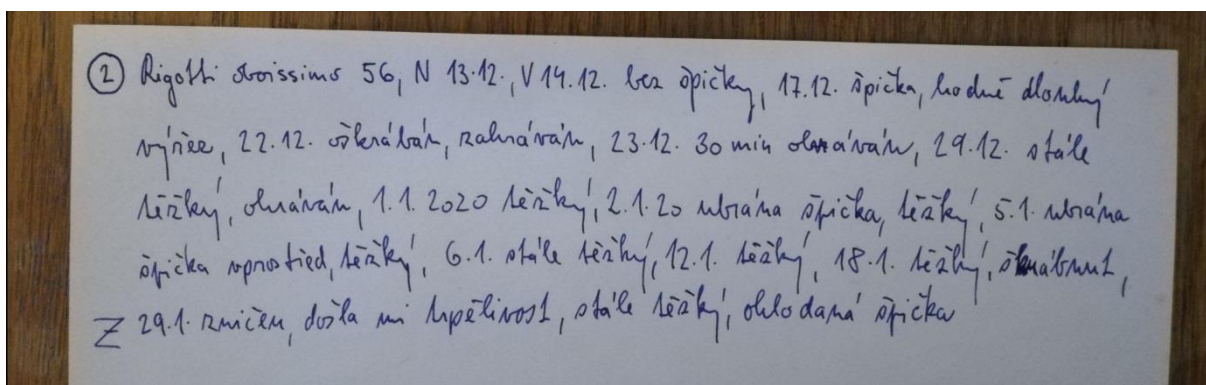 ② Rigotti dvoissimo 56, N 13.12., V 14.12. bez špičky, 17.12. špička, hodně dlouhý
výřez, 22.12. oškrábán, zahráván, 23.12. 30 min ohráván, 29.12. stále
těžký, ohráván, 1.1.2020 těžký, 2.1.20 ubrána špička, těžký, 5.1. ubrána
špička uprostřed, těžký, 6.1. stále těžký, 12.1. těžký, 18.1. těžký, škrábnut,
Z 29.1. zničen, došla mi trpělivost, stále těžký, ohlodaná špička